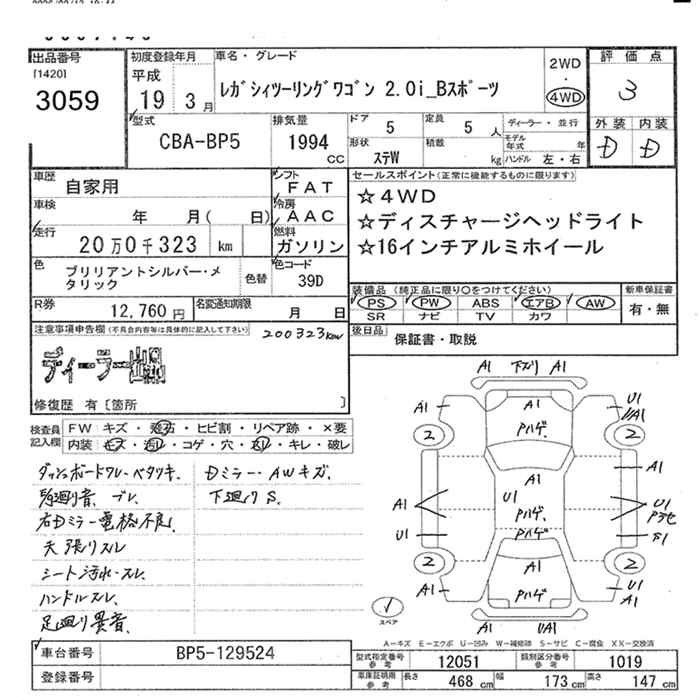 出品番号
[1420]
3059
初度登録年月
平成
19 3 月
車名・グレード
レガシィツーリングワゴン 2.0i_Bスポーツ
2WD
・
4WD
評価点
3
外装 内装
D D
型式
CBA-BP5
排気量
1994
CC
ドア 5
定員 5 人
形状 ステW
積載 kg
ディーラー・並行
モデル年式 年
ハンドル 左・右
車歴 自家用
車検 年 月( 日)
走行 20万0千323 km
色 ブリリアントシルバー・メタリック
色替
シフト FAT
冷房 AAC
燃料 ガソリン
色コード 39D
R券 12,760円
名変通知期限 月 日
セールスポイント(正常に機能するものに限ります)
☆4WD
☆ディスチャージヘッドライト
☆16インチアルミホイール
装備品 (純正品に限り○をつけてください)
PS PW ABS エアB AW
SR ナビ TV カワ
新車保証書
有・無
後日品 保証書・取説
注意事項申告欄(不具合内容等は具体的に記入して下さい)
200323km
修復歴 有〔箇所 〕
検査員記入欄
FW キズ・飛石・ヒビ割・リペア跡・×要
内装 キズ・汚レ・コゲ・穴・スレ・キレ・破レ
ダッシュボードワレ・ベタツキ.
駆廻り音. ブレ.
右Dミラー電格不良.
天張りスレ
シート汚れ・スレ.
ハンドルスレ.
足廻り異音.
Dミラー・AWキズ.
下廻り S.
A1 下ズリ A1
A1 A1 U1
U1A1
2 Pハゲ 2
A1 A1
A1 U1 Pハゲ U1
U1 Pハゲ S1
2 A1 2
A1 Pハゲ U1
A1
A1 U1A1
スペア
A-キズ E-エクボ U-凹み W-補修跡 S-サビ C-腐食 XX-交換済
車台番号 BP5-129524
登録番号
型式指定番号参考 12051
類別区分番号参考 1019
車庫証明用参考 長さ 468 cm 幅 173 cm 高さ 147 cm